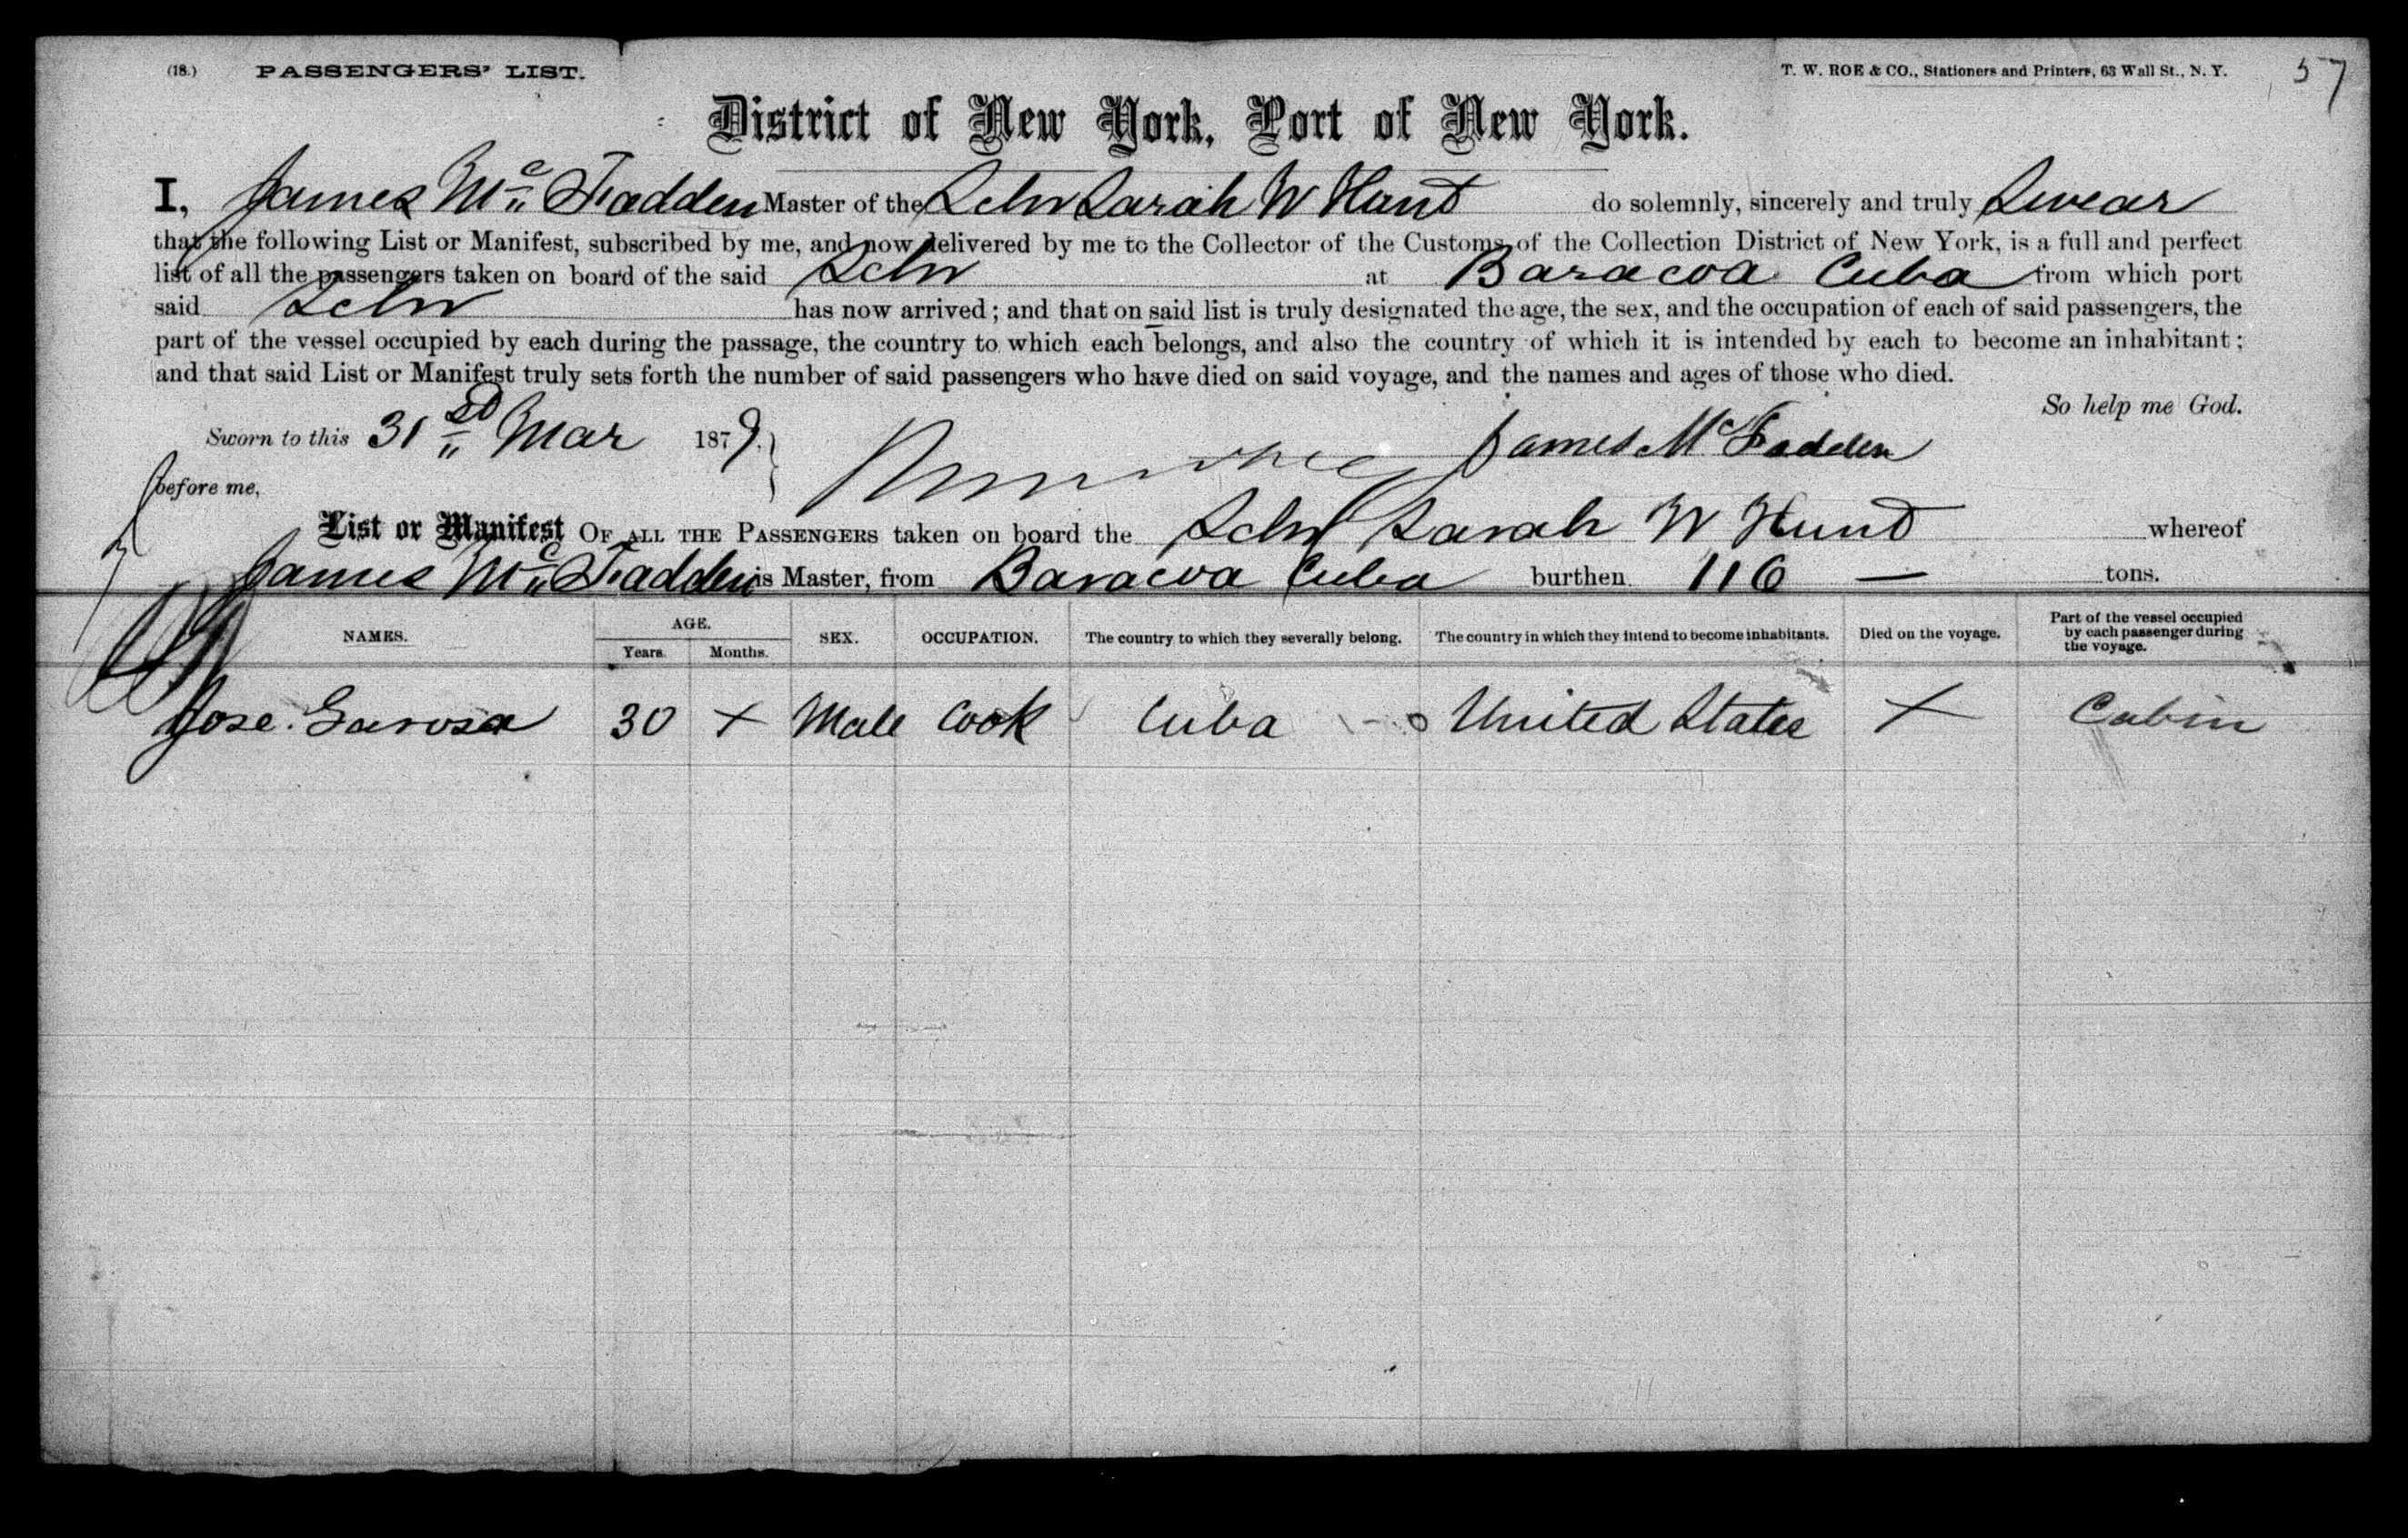 (18.) PASSENGERS' LIST. T. W. ROE & CO., Stationers and Printers, 63 Wall St., N. Y. 57
District of New York, Port of New York.
I, James Mc Fadden Master of the Schr Sarah W Hunt do solemnly, sincerely and truly Swear
that the following List or Manifest, subscribed by me, and now delivered by me to the Collector of the Customs of the Collection District of New York, is a full and perfect
list of all the passengers taken on board of the said Schr at Baracoa Cuba from which port
said Schr has now arrived; and that on said list is truly designated the age, the sex, and the occupation of each of said passengers, the
part of the vessel occupied by each during the passage, the country to which each belongs, and also the country of which it is intended by each to become an inhabitant;
and that said List or Manifest truly sets forth the number of said passengers who have died on said voyage, and the names and ages of those who died.
So help me God.
Sworn to this 31st Mar 1879. James McFadden
before me,
List or Manifest OF ALL THE PASSENGERS taken on board the Schr Sarah W Hunt whereof
James Mc Fadden is Master, from Baracoa Cuba burthen 116 — tons.
NAMES. AGE. Years. Months. SEX. OCCUPATION. The country to which they severally belong. The country in which they intend to become inhabitants. Died on the voyage. Part of the vessel occupied by each passenger during the voyage.
Jose Garosa 30 X Male Cook Cuba United States X Cabin